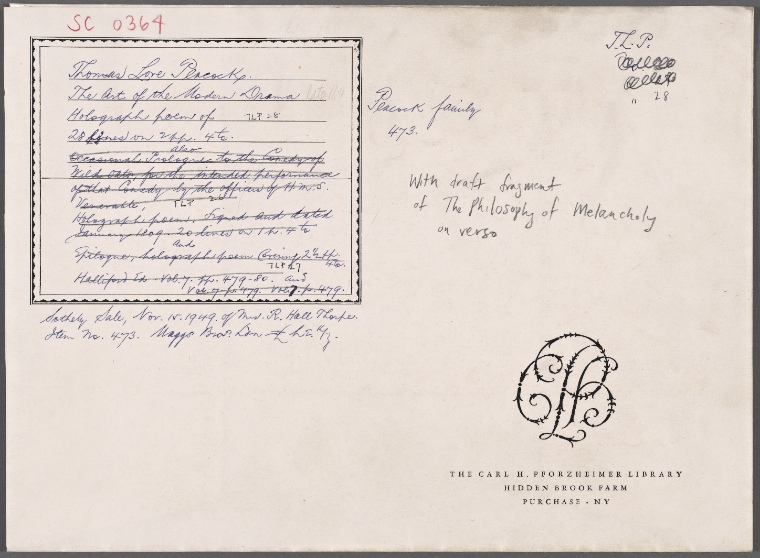 SC 0364
Thomas Love Peacock.
The Art of the Modern Drama
Holograph poem of TLP 28
28 lines on 2 pp. 4to.
also
Occasional Prologue to the Comedy of
Wild Oats for the intended performance
of that Comedy by the officers of H.M.S.
Venerable,
Holograph poem, Signed and dated
January 1809. 20 lines on 1 p. 4to
And
Epilogue, holograph poem Covering 2 1/2 pp.
4to.
TLP 27
Halliford Ed. Vol. 7. pp. 479-80. and
Vol. 7. p. 479. Vol. 7. p. 479.
Sotheby Sale, Nov. 15. 1949. of Mrs. R. Hall Thorpe.
Item No. 473. Maggs Bros. Lon
T.L.P.
" 28
Peacock family
473.
With draft fragment
of The Philosophy of Melancholy
on verso
THE CARL H. PFORZHEIMER LIBRARY
HIDDEN BROOK FARM
PURCHASE - NY